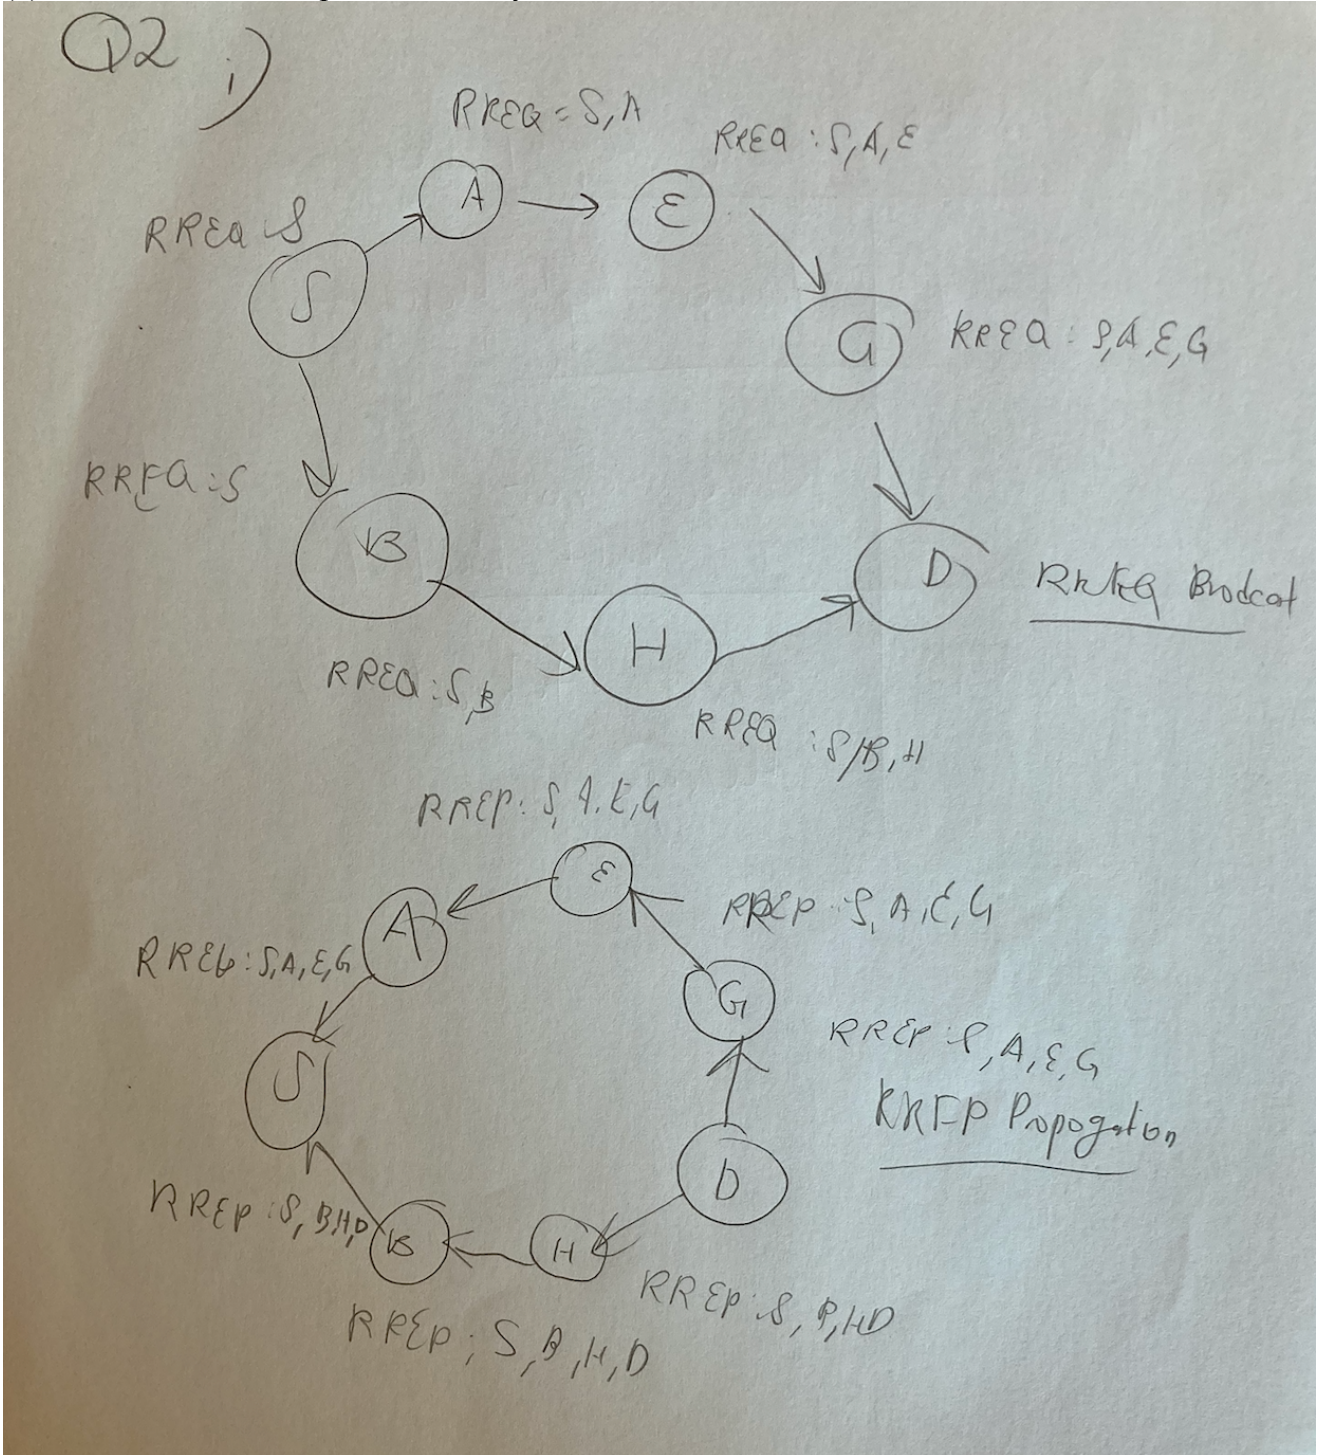 Q2 i)
RREQ = S, A
RREQ : S, A, E
RREQ : S
A
E
S
G
RREQ : S, A, E, G
RREQ : S
B
D
RREQ Brodcat
H
RREQ : S, B
RREQ : S, B, H
RREP : S, A, E, G
E
RREP : S, A, E, G
A
RREP : S, A, E, G
G
RREP : S, A, E, G
S
RREP Propogation
D
RREP : S, B, H, D
B
H
RREP : S, B, H D
RREP ; S, B, H, D